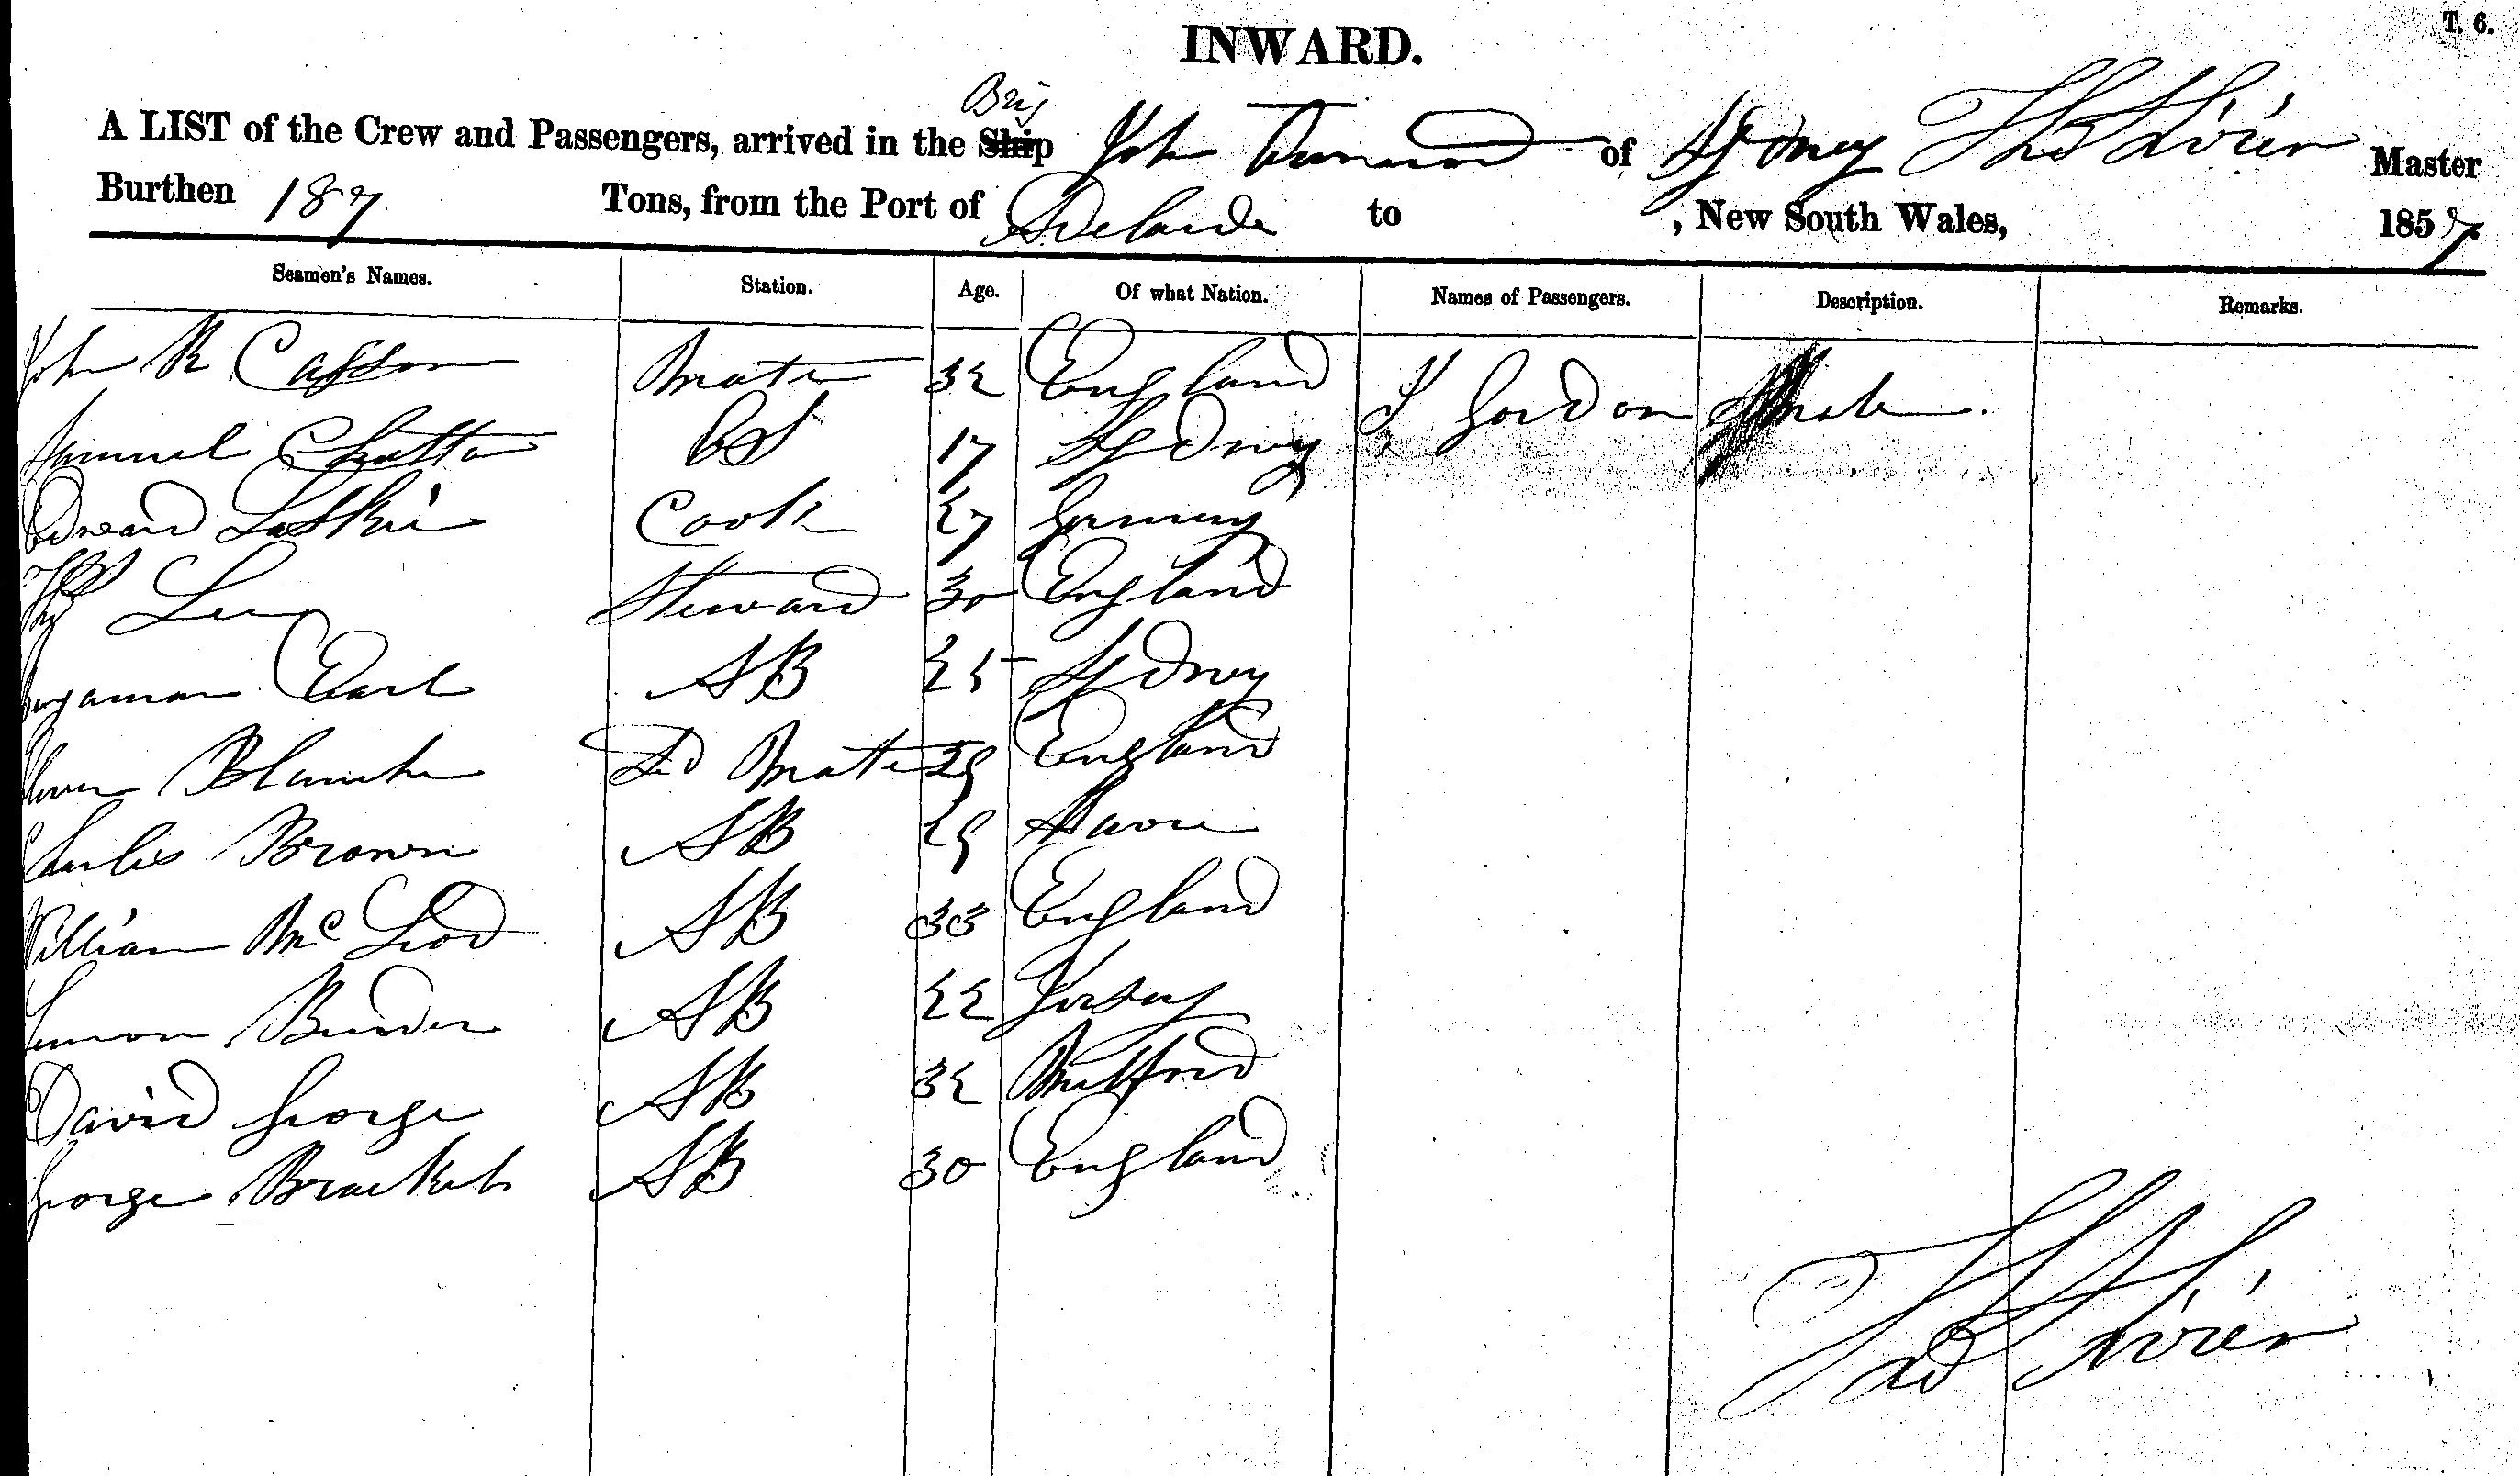 T. 6.
INWARD.
Brig
A LIST of the Crew and Passengers, arrived in the Ship John of Sydney Thos Master
Burthen 187 Tons, from the Port of Adelaide to , New South Wales, 1857
Seamen's Names. Station. Age. Of what Nation. Names of Passengers. Description. Remarks.
John R Casson Mate 32 England Gordon
Samuel 17 Sydney
Edward Cook 27 Germany
Thos Steward 30 England
Earl AB 25 Sydney
Blanche 2d Mate 29 England
Charles Brown AB 29 Havre
William McLeod AB 33 England
AB 22 Jersey
David George AB 32 Milford
George Bracket AB 30 England
Thos